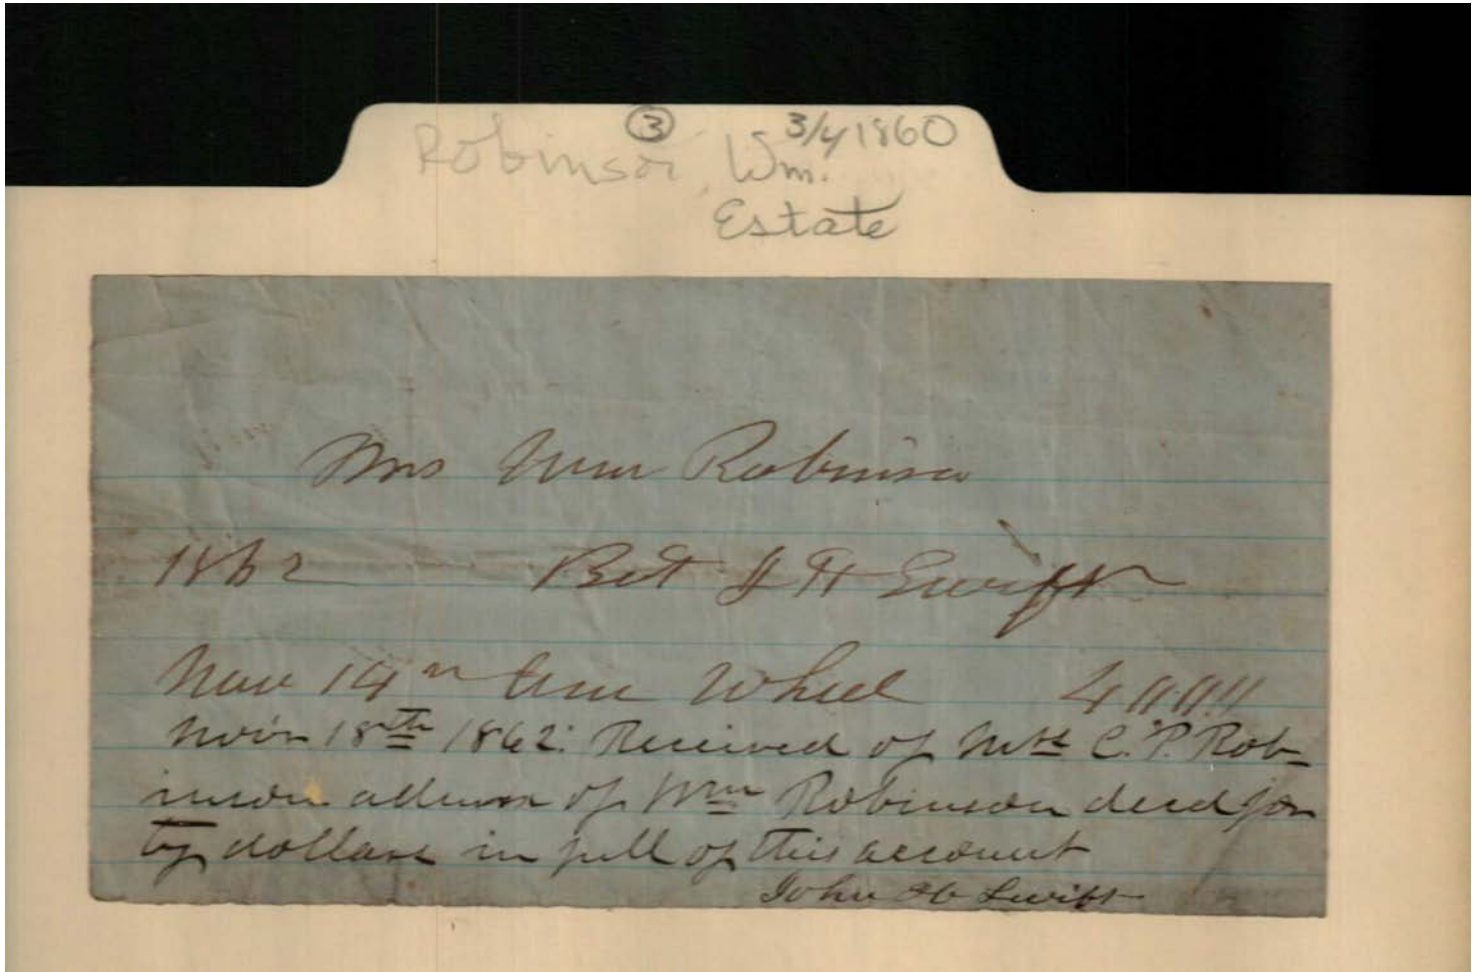 ③ 3/4 1860
Robinson, Wm.
Estate
Mrs Wm Robinson
1862 Bot J H Swift
Nov 14th Wheel
Nov'r 18th 1862: Received of Mrs C. P. Rob-
inson admrx of Wm Robinson decd for
ty dollars in full of this account
John H Swift